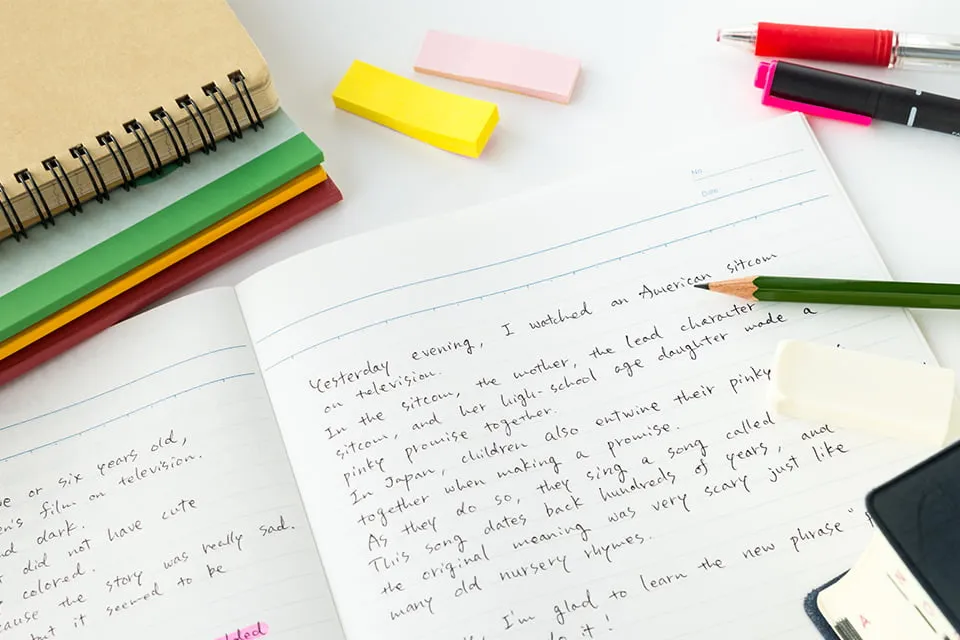 ve or six years old,
en's film on television.
nd dark.
did not have cute
colored.
cause the story was really sad.
but it seemed to be
No.
Date
Yesterday evening, I watched an American sitcom
on television.
In the sitcom, the mother, the lead character
sitcom, and her high-school age daughter made a
pinky promise together.
In Japan, children also entwine their pinky
together when making a promise.
As they do so, they sing a song called
This song dates back hundreds of years, and
the original meaning was very scary just like
many old nursery rhymes.
I'm glad to learn the new phrase "
do it!